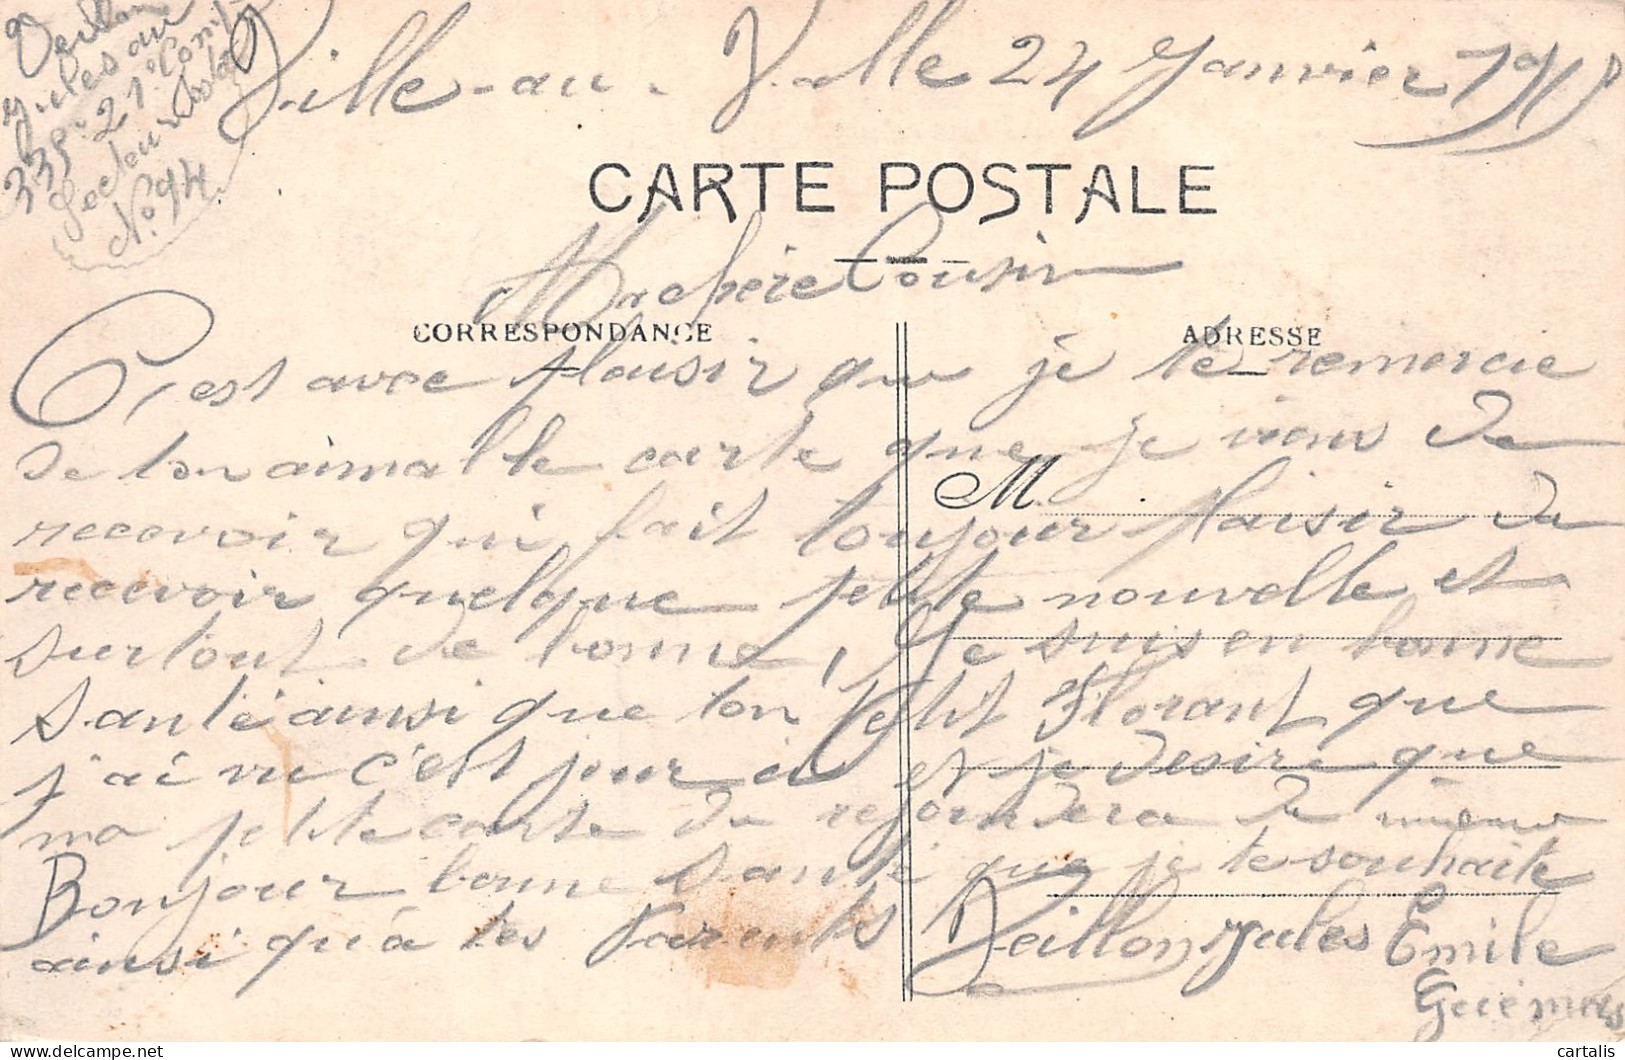 Jules au
339. 21e Comp
Secteur Postal
No 94
Ville-au-Valle 24 Janvier 1915
CARTE POSTALE
Ma chère Cousin
CORRESPONDANCE
ADRESSE
C'est avec plaisir que je te remercie
de ton aimable carte que je viens de
M
recevoir qui fait toujour plaisir de
recevoir quelque petite nouvelle et
surtout de bonne, Je suis en bonne
santé ainsi que ton Petit Florant que
j'ai vu c'est jour ci et je desire que
ma petite carte de rejoindera de même
Bonjour bonne santé que je te souhaite
ainsi qu'à tes Parents Veillon Jules Emile
cartalis
delcampe.net